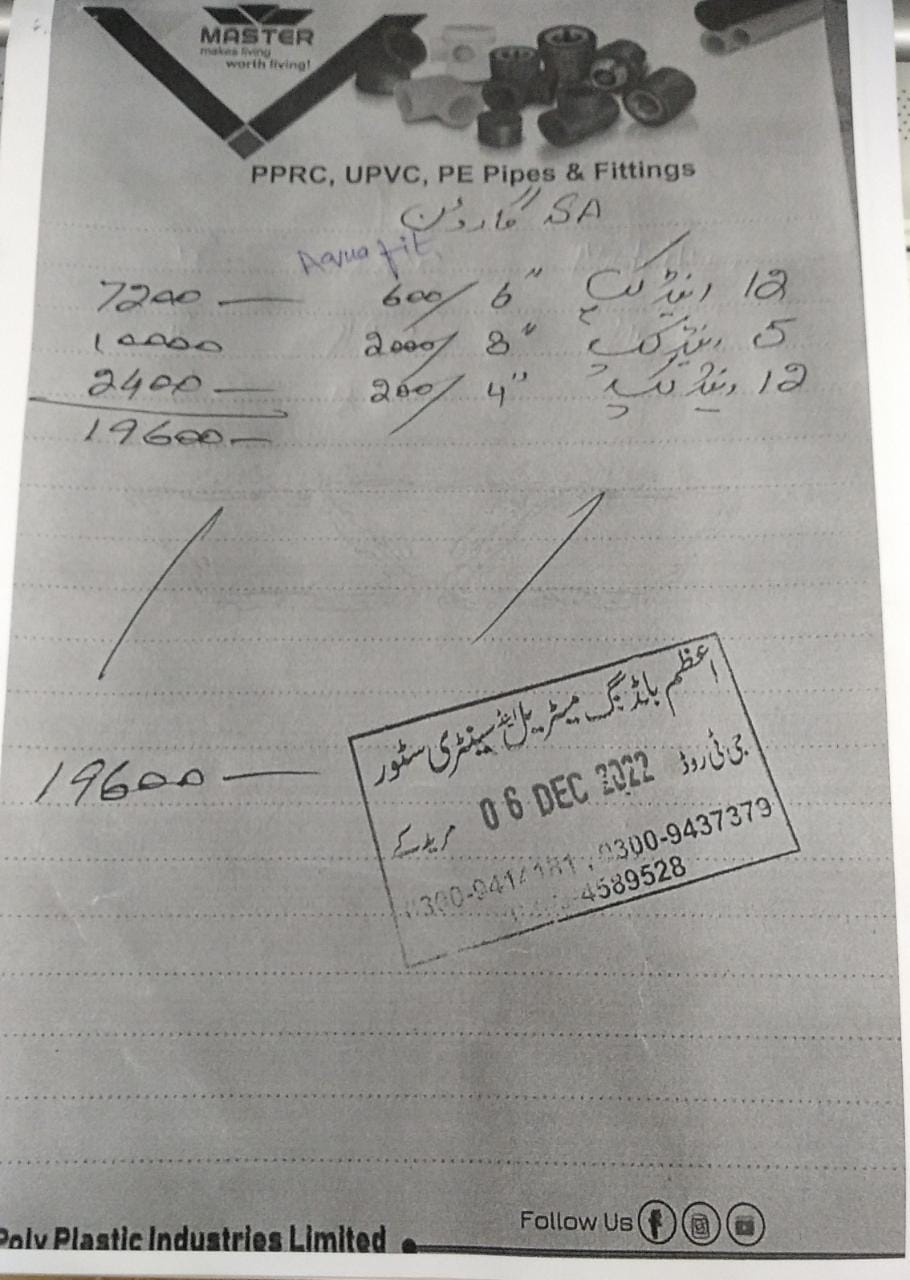 MASTER
makes living
worth living!
PPRC, UPVC, PE Pipes & Fittings
SA گارڈن
Aqua fit
12 اینڈ کیپ 6" 600/ 7200
5 اینڈ کیپ 8" 2000/ 10000
12 اینڈ کیپ 4" 200/ 2400
19600
19600
اعظم بلڈنگ میٹریل اینڈ سینٹری سٹور
جی ٹی روڈ 06 DEC 2022 مریدکے
0300-9437379
4589528
Follow Us
Poly Plastic Industries Limited